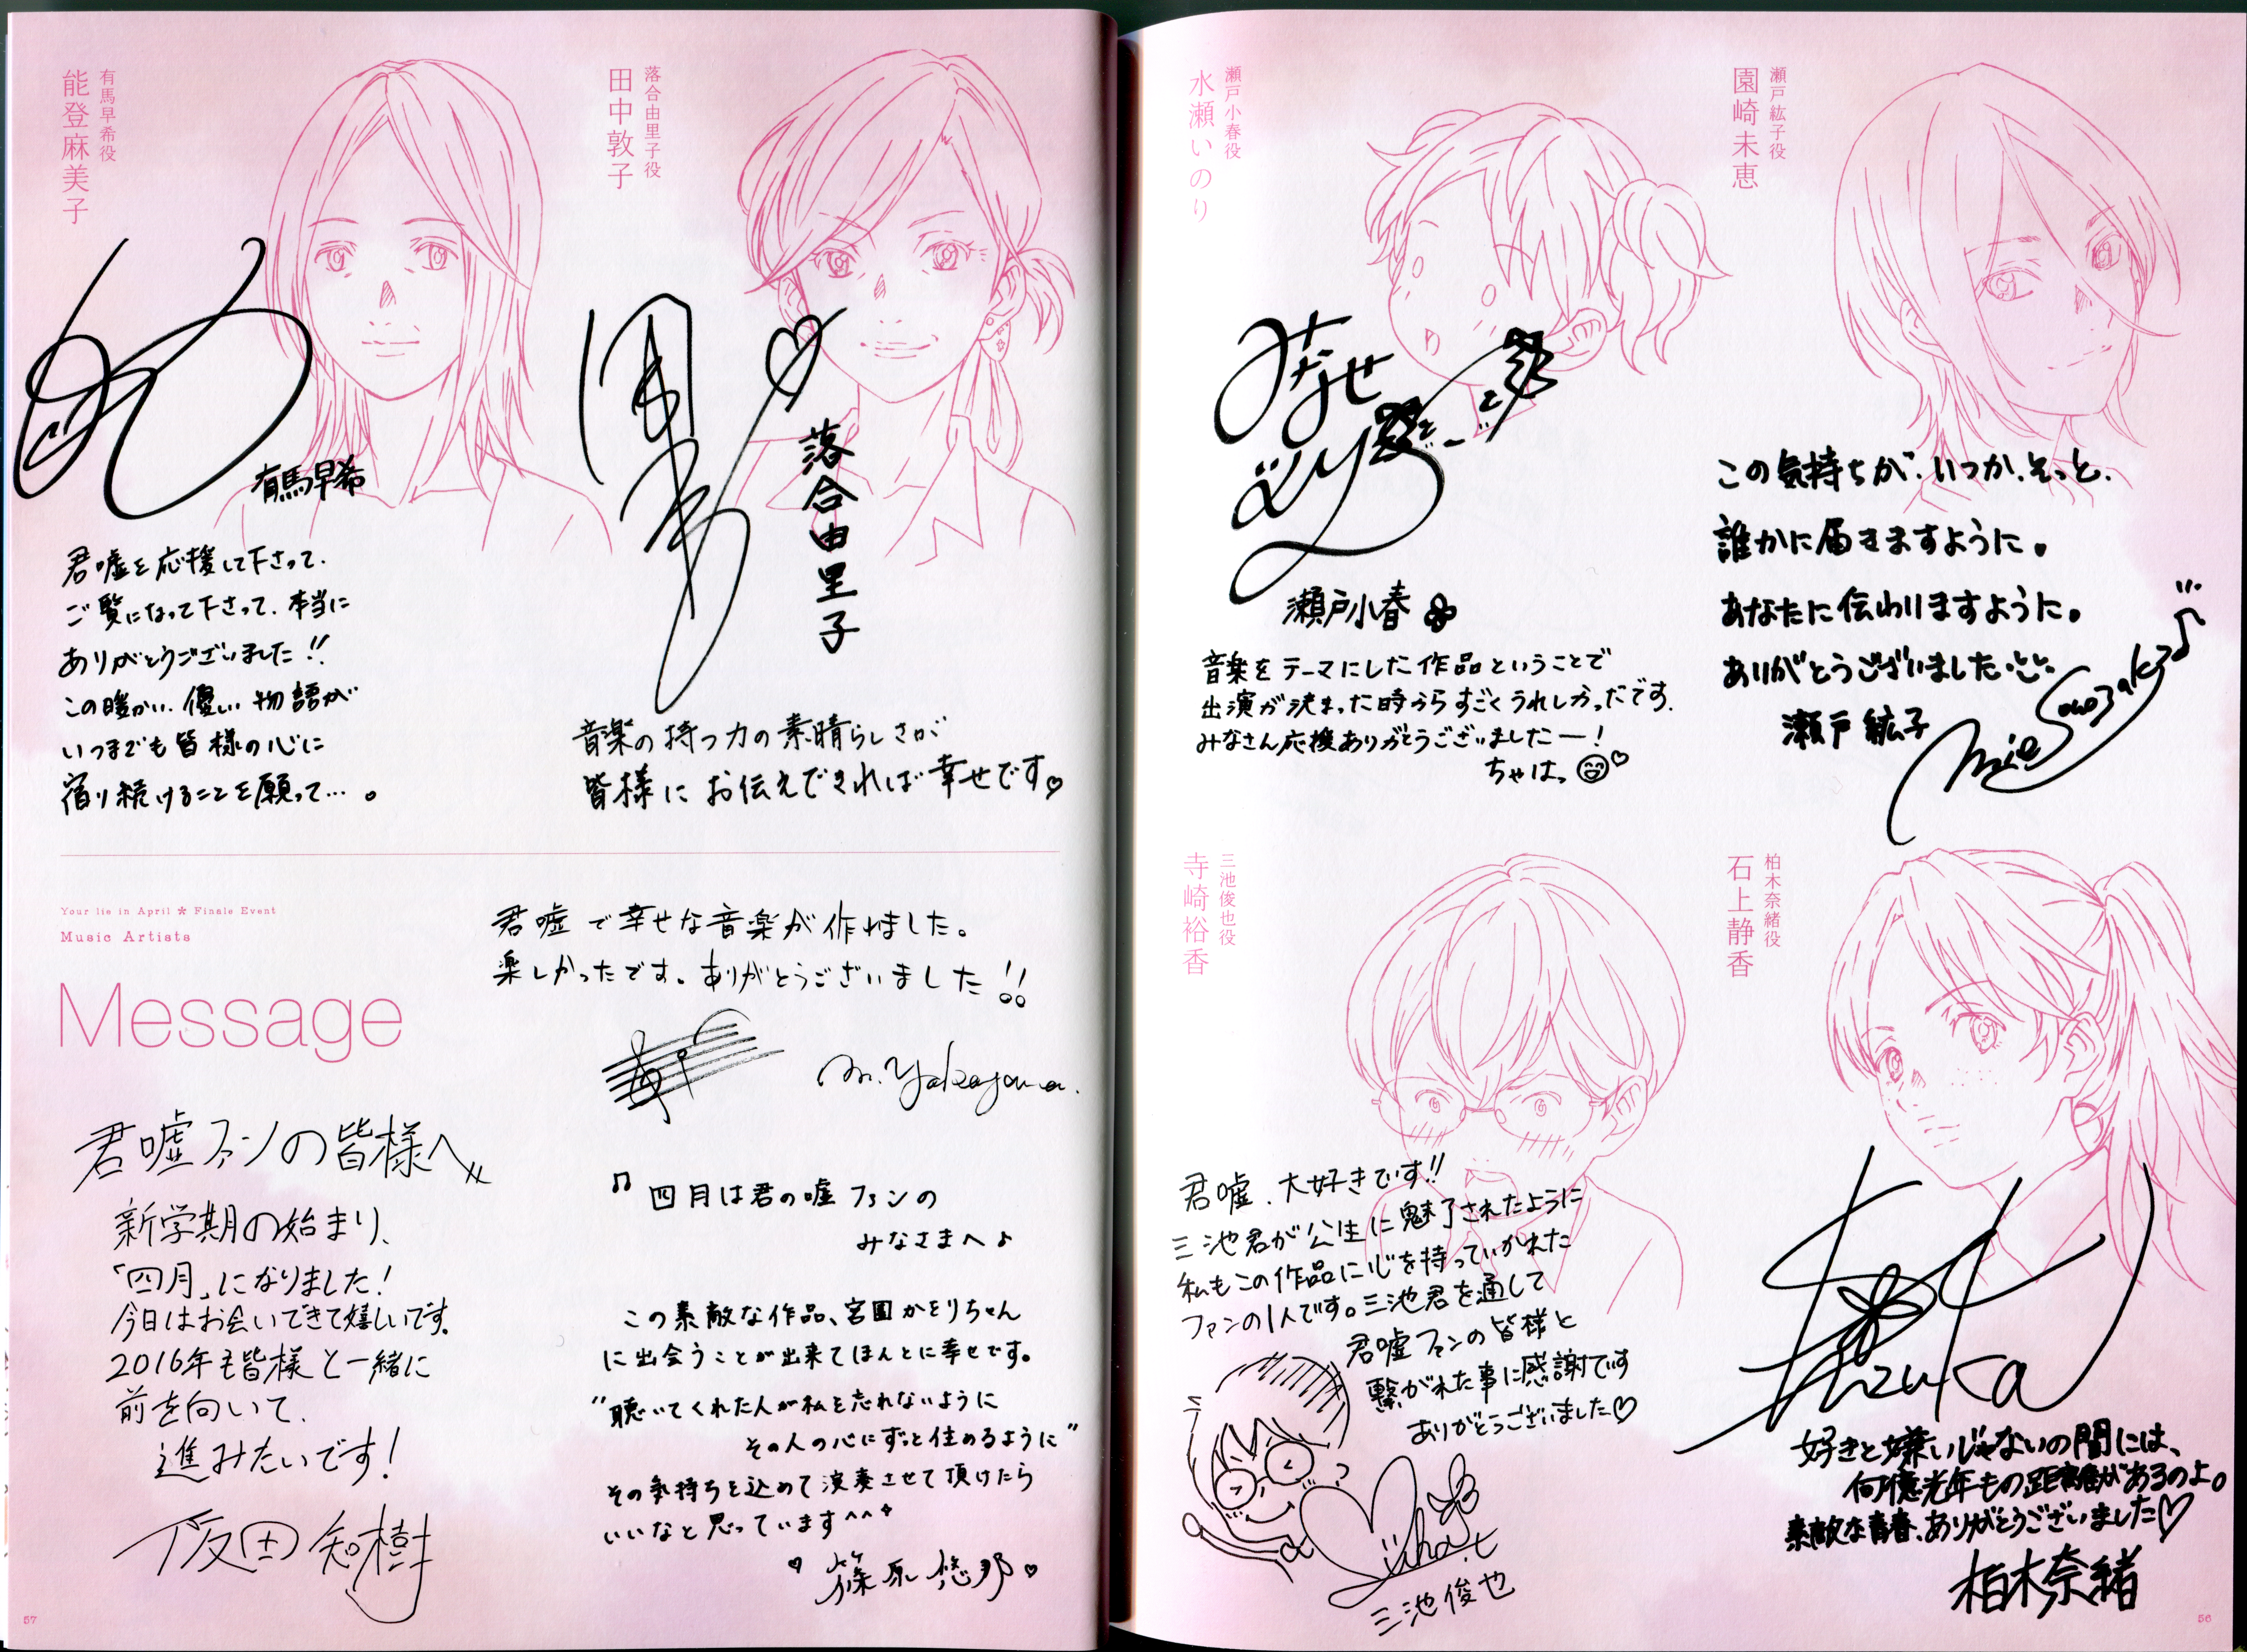 瀬戸紘子役
園崎未恵
この気持ちが、いつか、そっと、
誰かに届きますように。
あなたに伝わりますように。
ありがとうございました
瀬戸紘子
Mie Sonozaki
瀬戸小春役
水瀬いのり
みなせ
いのり
瀬戸小春
音楽をテーマにした作品ということで
出演が決まった時からすごくうれしかったです.
みなさん応援ありがとうございましたー!
ちゃはっ
柏木奈緒役
石上静香
Shizuka
好きと嫌いじゃないの間には、
何億光年もの距離があるのよ。
素敵な青春、ありがとうございました♡
柏木奈緒
三池俊也役
寺崎裕香
君嘘、大好きです!!
三池君が公生に魅了されたように
私もこの作品に心を持っていかれた
ファンの1人です。三池君を通して
君嘘ファンの皆様と
繋がれた事に感謝です
ありがとうございました♡
三池俊也
56
落合由里子役
田中敦子
落合由里子
音楽の持つ力の素晴らしさが
皆様にお伝えできれば幸せです♡
有馬早希役
能登麻美子
有馬早希
君嘘を応援して下さって、
ご覧になって下さって、本当に
ありがとうございました!!
この暖かい、優しい物語が
いつまでも皆様の心に
宿り続けることを願って…。
Your lie in April * Finale Event
Music Artists
Message
君嘘で幸せな音楽が作れました。
楽しかったです。ありがとうございました!!
m.yokoyama.
君嘘ファンの皆様へ
新学期の始まり、
「四月」になりました!
今日はお会いできて嬉しいです。
2016年も皆様と一緒に
前を向いて、
進みたいです!
阪田知樹
♫ 四月は君の嘘ファンの
みなさまへ♪
この素敵な作品、宮園かをりちゃん
に出会うことが出来てほんとに幸せです。
"聴いてくれた人が私を忘れないように
その人の心にずっと住めるように"
その気持ちを込めて演奏させて頂けたら
いいなと思っています^^
♡篠原悠那♡
57